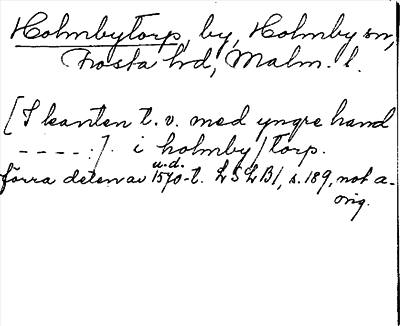 Holmbytorp, by, Holmby sn,
Frosta hd, Malm. l.
[I kanten t. v. med yngre hand
- - - - :]. i holmby/torp.
u. d.
förra delen av 1570-t. LSLB1, s. 189, not a-
orig.